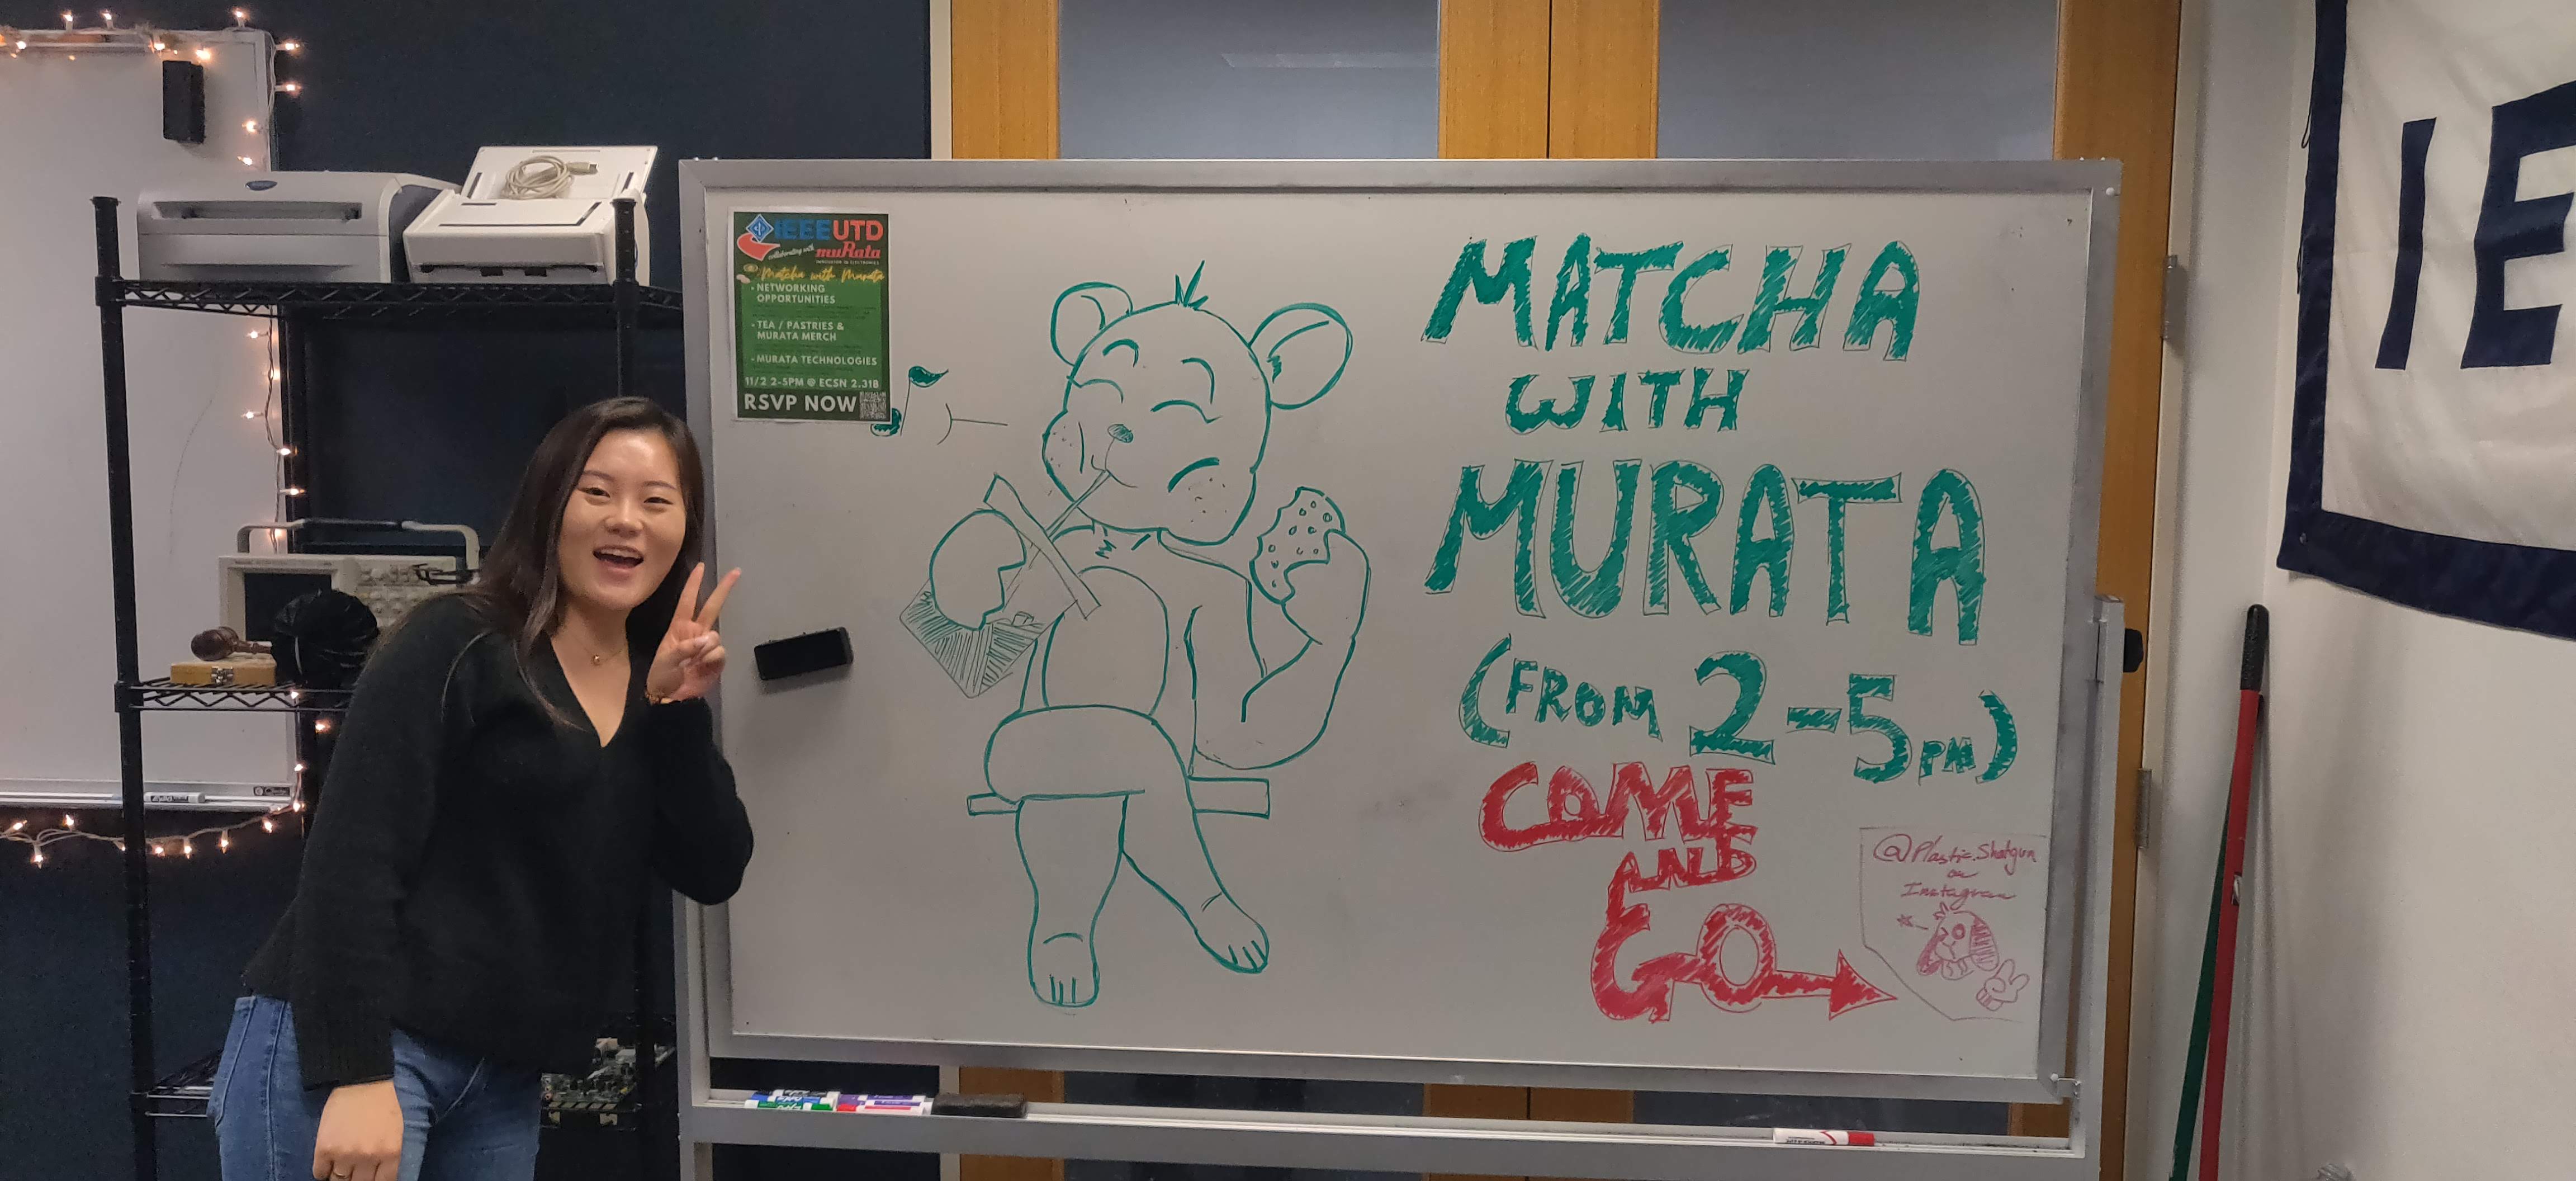 IEEE UTD
collaborating with
muRata
INNOVATION IN ELECTRONICS
Matcha with Murata
• NETWORKING
OPPORTUNITIES
• TEA / PASTRIES &
MURATA MERCH
• MURATA TECHNOLOGIES
11/2 2-5PM @ ECSN 2.318
RSVP NOW
MATCHA
WITH
MURATA
(FROM 2-5PM)
COME
AND
GO
@Plastic.Shotgun
on
Instagram
IE